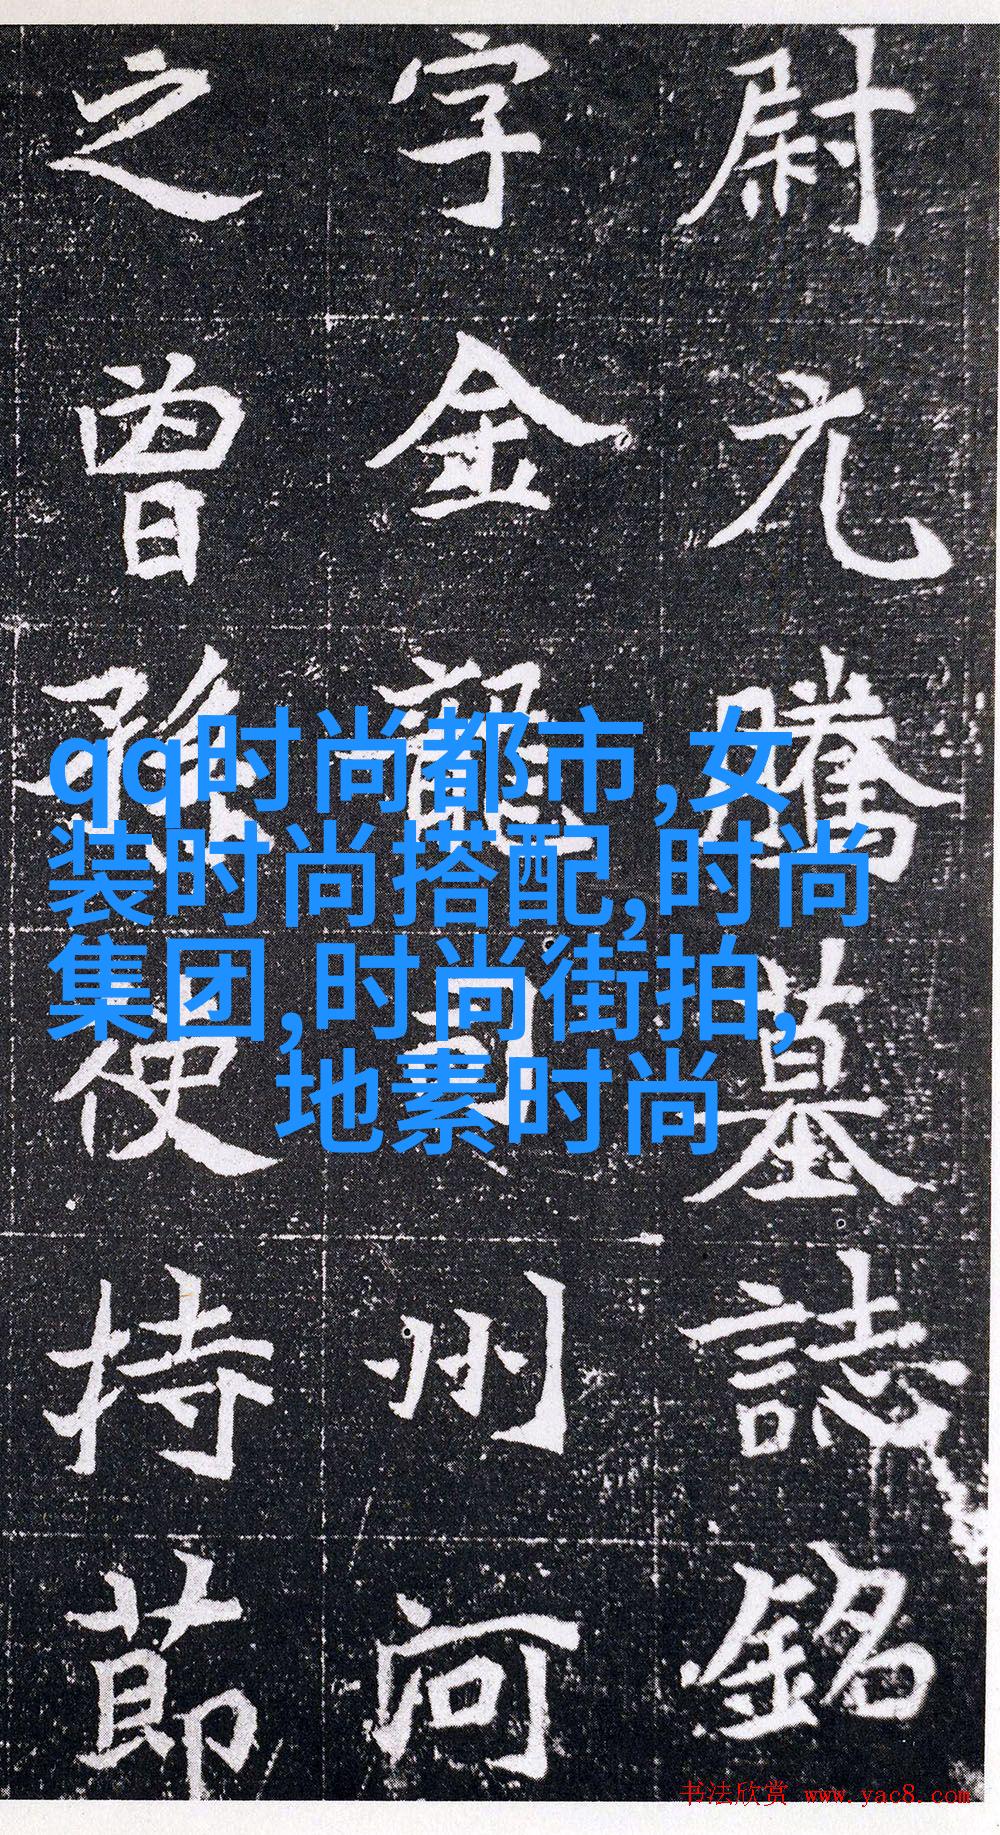 尉元騰墓誌銘
字金龍司州河
之曾孫使持節
qq时尚都市,女
装时尚搭配,时尚
集团,时尚街拍,
地素时尚
书法欣赏 www.yac8.com